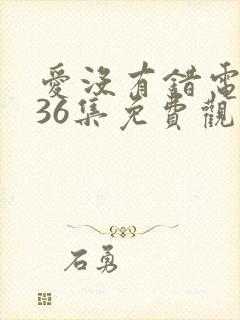 愛沒有錯電
36集免費觀
石勇